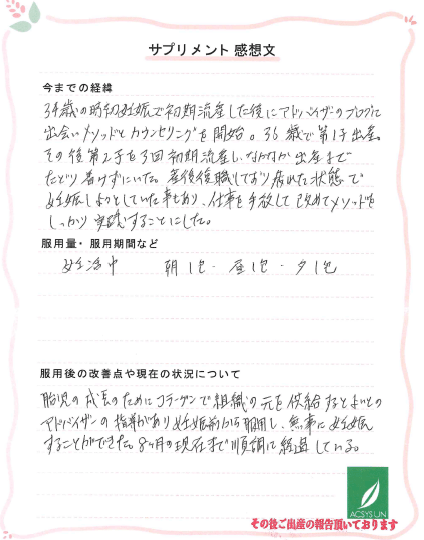 サプリメント 感想文
今までの経緯
34歳の時初妊娠で初期流産した後にアドバイザーのブログに
出会いメソッドとカウンセリングを開始。36歳で第1子出産。
その後第2子を3回初期流産し、なかなか出産まで
たどり着けずにいた。産後復職しており疲れた状態で
妊娠しようとしていた事もあり、仕事を手放して改めてメソッドを
しっかり実践することにした。
服用量・服用期間など
妊活中 朝1包・昼1包・夕1包
服用後の改善点や現在の状況について
胎児の成長のためにコラーゲンで組織の元を供給するとよいとの
アドバイザーの指導があり妊娠前から服用し、無事に妊娠
することができた。8ヶ月の現在まで順調に経過している。
ACSYSUN
その後ご出産の報告頂いております